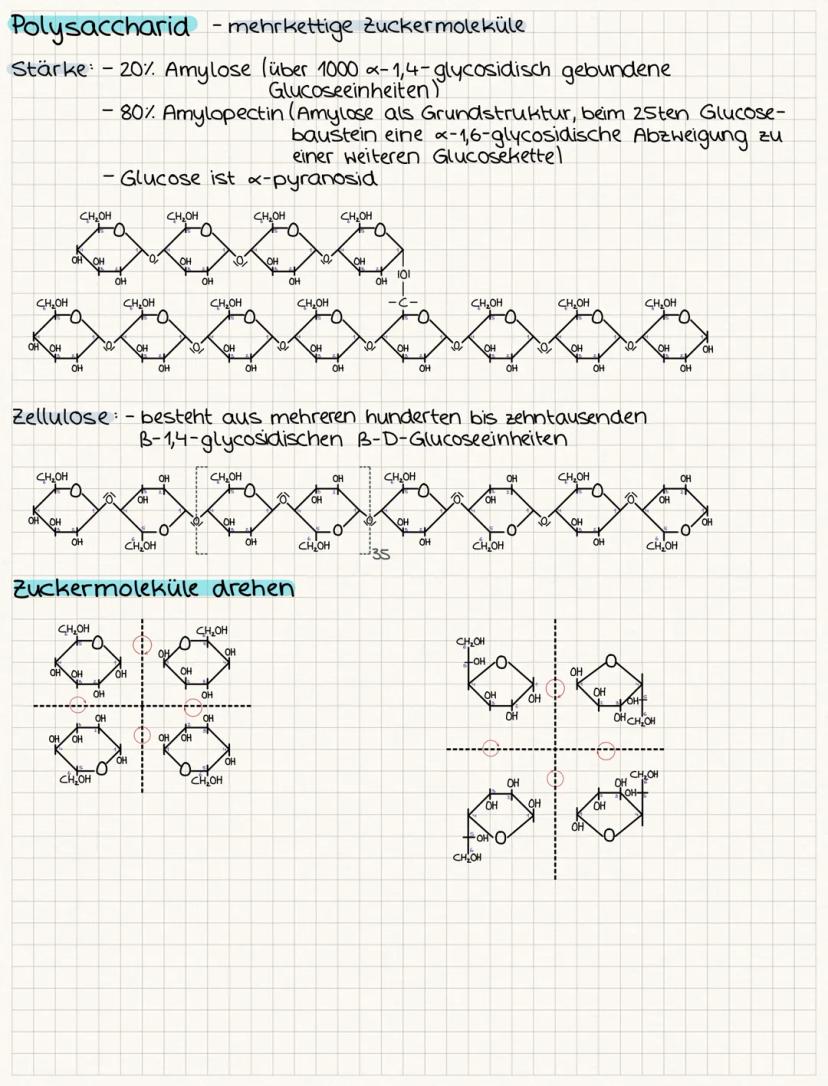 Polysaccharid - mehrkettige Zuckermoleküle
Stärke: - 20% Amylose (über 1000 α-1,4-glycosidisch gebundene
Glucoseeinheiten)
- 80% Amylopectin (Amylose als Grundstruktur, beim 25ten Glucose-
baustein eine α-1,6-glycosidische Abzweigung zu
einer weiteren Glucosekette)
- Glucose ist α-pyranosid
CH₂OH CH₂OH CH₂OH CH₂OH
O O O O
OH OH OH OH OH
O O O
OH OH OH OH
IOI
CH₂OH CH₂OH CH₂OH CH₂OH -C- CH₂OH CH₂OH CH₂OH
O O O O O O O O
OH OH OH OH OH OH OH OH OH OH
O O O O O O O
OH OH OH OH OH OH OH OH
Zellulose: - besteht aus mehreren hunderten bis zehntausenden
β-1,4-glycosidischen β-D-Glucoseeinheiten
CH₂OH OH CH₂OH OH CH₂OH OH CH₂OH OH
O O OH O O OH O O OH O O OH
OH OH O OH O OH O OH
OH O OH O OH O OH O
OH CH₂OH OH CH₂OH OH CH₂OH OH CH₂OH
35
Zuckermoleküle drehen
CH₂OH CH₂OH
O OH O
OH OH OH OH OH
OH OH
OH OH
OH OH OH OH
OH OH
O O
CH₂OH CH₂OH
CH₂OH
OH O O
OH
OH OH OH OH
OH OH CH₂OH
OH OH CH₂OH
OH OH OH OH
OH
OH O O
CH₂OH